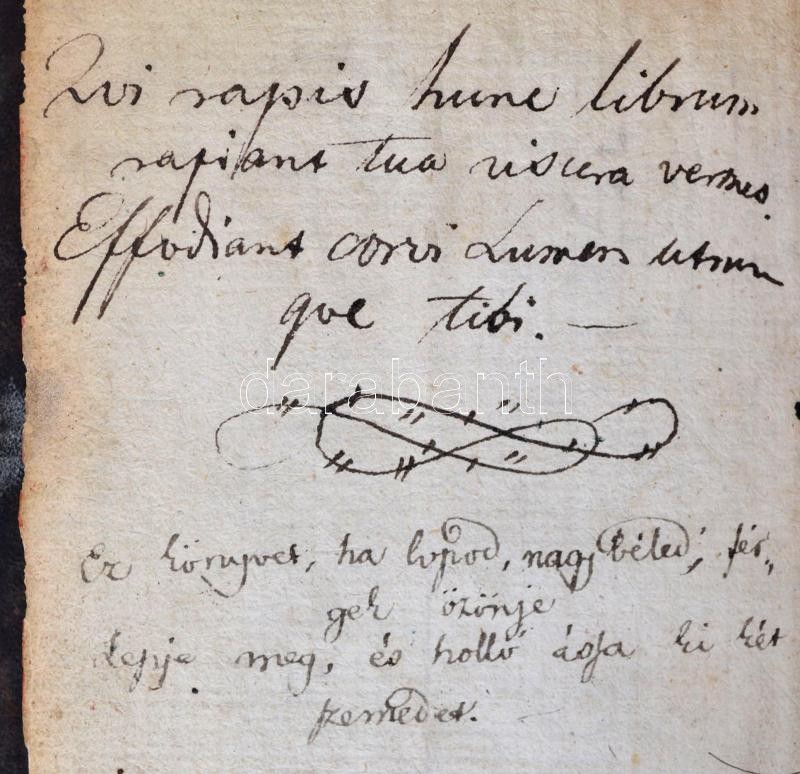 Qvi rapis hunc librum
rapiant tua viscera vermes.
Effodiant corvi Lumen utrum
qve tibi. —
darabanth
Ez könyvet, ha lopod, nagy béled, fér„
gek özönje
lepje meg, és holló ássa ki két
szemedet. —